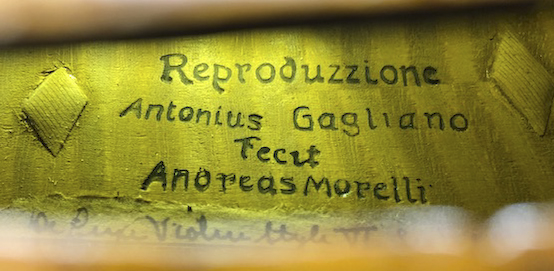 Reproduzzione
Antonius Gagliano
Fecit
Andreas Morelli
Violin Style